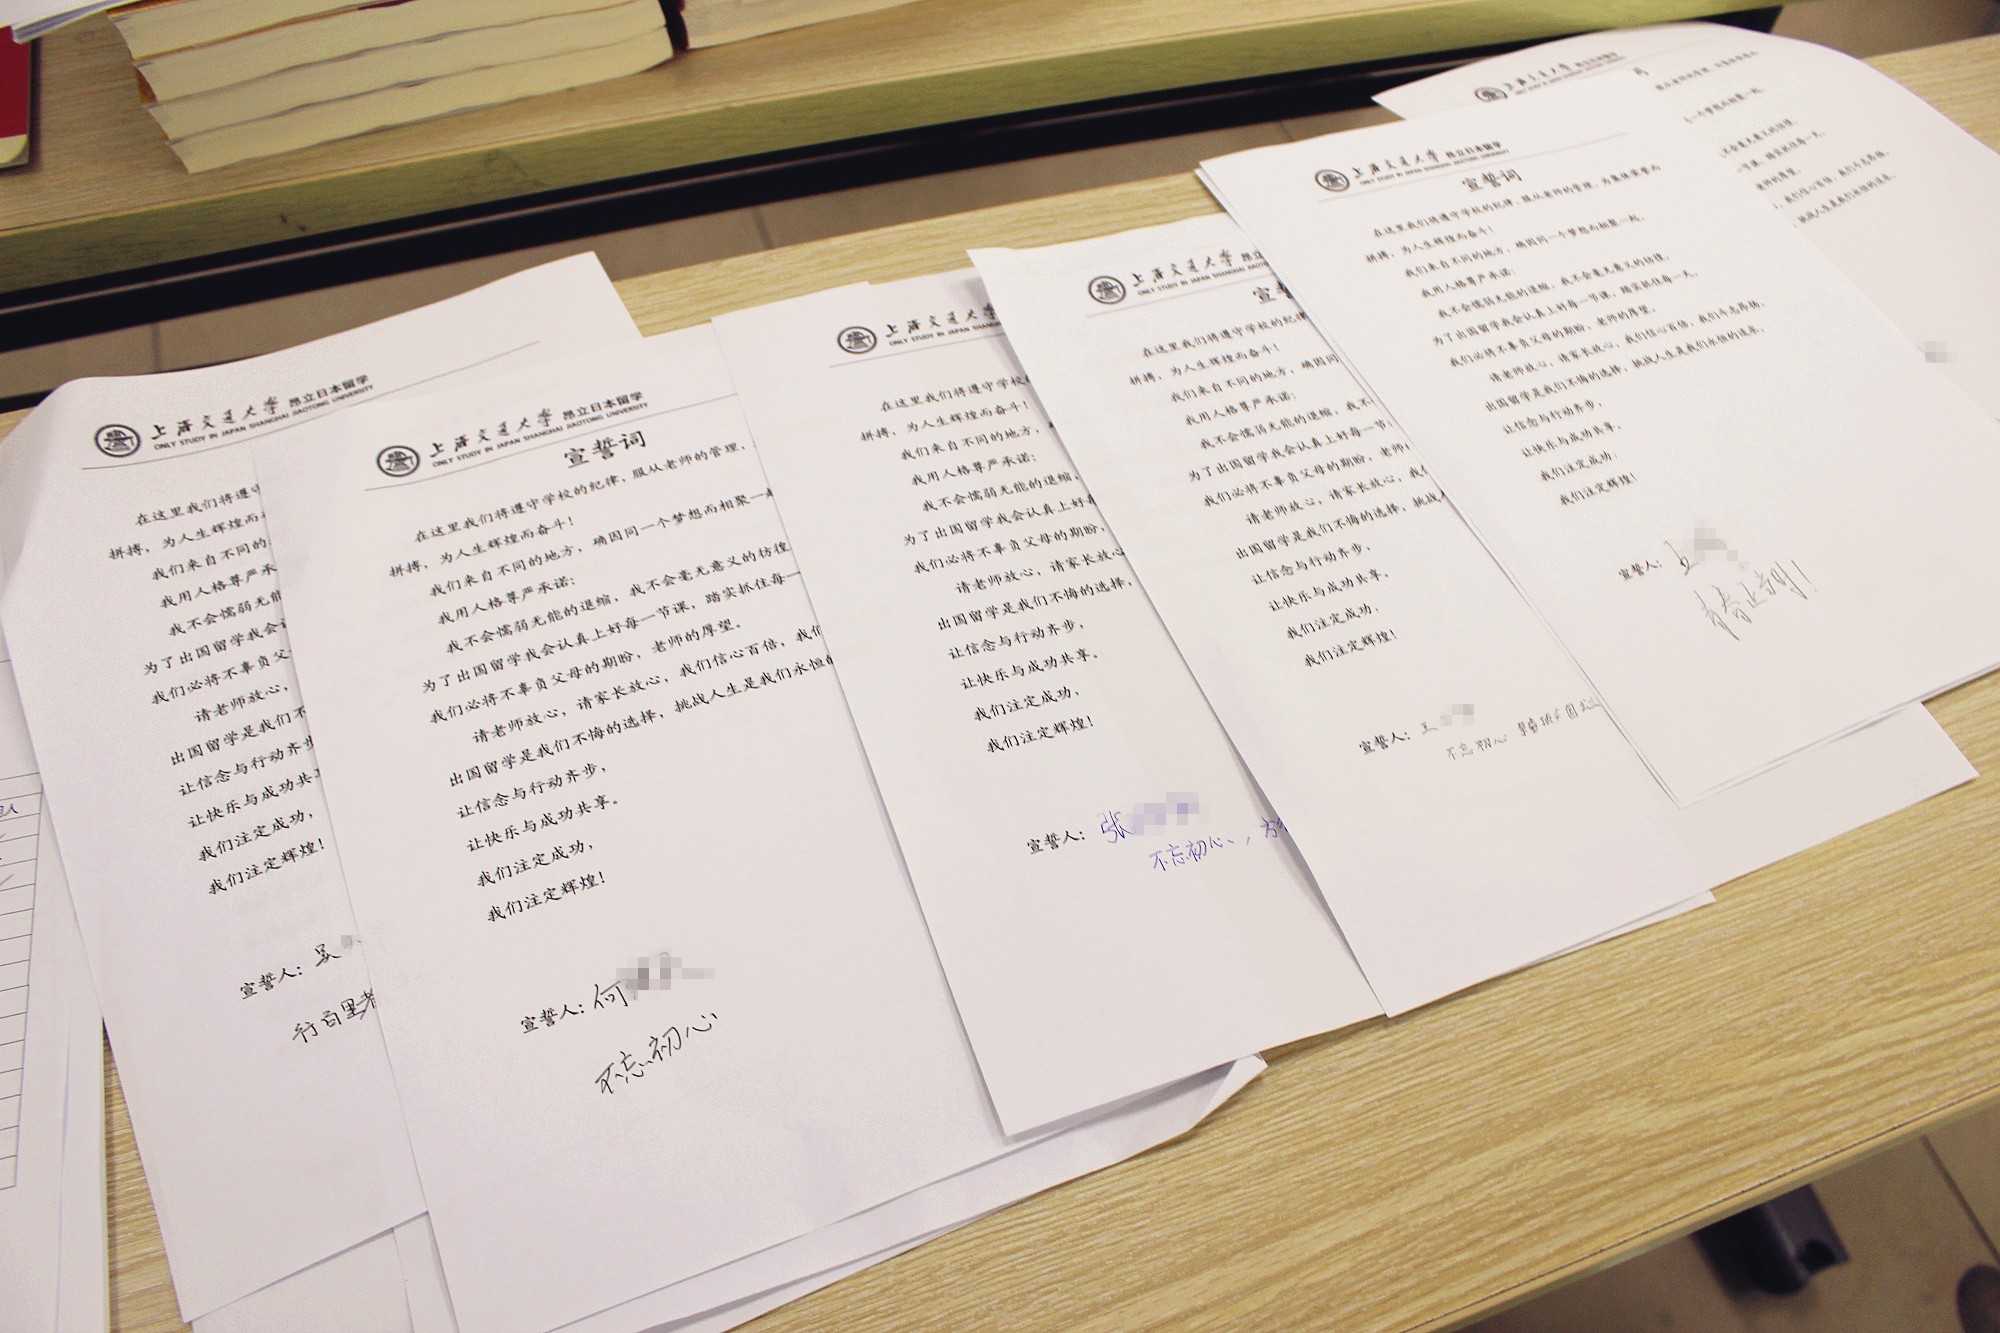 上海交通大学 昂立日本留学
ONLY STUDY IN JAPAN SHANGHAI JIAOTONG UNIVERSITY
在这里我们将遵守
拼搏，为人生辉煌而
我们来自不同的
我用人格尊严承
我不会懦弱无能
为了出国留学我会
我们必将不辜负父
请老师放心，
出国留学是我们不
让信念与行动齐步
让快乐与成功共
我们注定成功，
我们注定辉煌！
宣誓人：吴
行百里者
上海交通大学 昂立日本留学
ONLY STUDY IN JAPAN SHANGHAI JIAOTONG UNIVERSITY
宣誓词
在这里我们将遵守学校的纪律，服从老师的管理，
拼搏，为人生辉煌而奋斗！
我们来自不同的地方，确因同一个梦想而相聚一起
我用人格尊严承诺：
我不会懦弱无能的退缩，我不会毫无意义的彷徨
为了出国留学我会认真上好每一节课，踏实抓住每一
我们必将不辜负父母的期盼，老师的厚望。
请老师放心，请家长放心，我们信心百倍，我们
出国留学是我们不悔的选择，挑战人生是我们永恒的
让信念与行动齐步，
让快乐与成功共享。
我们注定成功，
我们注定辉煌！
宣誓人：何
不忘初心
上海交通大学
ONLY STUDY IN JAPAN SHANGHAI JIAOTONG
在这里我们将遵守学校
拼搏，为人生辉煌而奋斗！
我们来自不同的地方，
我用人格尊严承诺：
我不会懦弱无能的退缩，
为了出国留学我会认真上好每
我们必将不辜负父母的期盼，
请老师放心，请家长放心
出国留学是我们不悔的选择，
让信念与行动齐步，
让快乐与成功共享。
我们注定成功，
我们注定辉煌！
宣誓人：张
不忘初心，方
上海交通大学 昂立
ONLY STUDY IN JAPAN SHANGHAI JIAOTONG
宣
在这里我们将遵守学校的纪律
拼搏，为人生辉煌而奋斗！
我们来自不同的地方，确因同
我用人格尊严承诺：
我不会懦弱无能的退缩，我不
为了出国留学我会认真上好每一节
我们必将不辜负父母的期盼，老师
请老师放心，请家长放心，我
出国留学是我们不悔的选择，挑战
让信念与行动齐步，
让快乐与成功共享。
我们注定成功，
我们注定辉煌！
宣誓人：王
不忘初心
上海交通大学 昂立日本留学
ONLY STUDY IN JAPAN SHANGHAI JIAOTONG UNIVERSITY
宣誓词
在这里我们将遵守学校的纪律，服从老师的管理，为集体荣誉而
拼搏，为人生辉煌而奋斗！
我们来自不同的地方，确因同一个梦想而相聚一起，
我用人格尊严承诺：
我不会懦弱无能的退缩，我不会毫无意义的彷徨。
为了出国留学我会认真上好每一节课，踏实抓住每一天。
我们必将不辜负父母的期盼，老师的厚望。
请老师放心，请家长放心，我们信心百倍，我们斗志昂扬。
出国留学是我们不悔的选择，挑战人生是我们永恒的追求。
让信念与行动齐步，
让快乐与成功共享。
我们注定成功，
我们注定辉煌！
宣誓人：
上海交通大学 昂立日本留学
一个梦想而相聚一起，
不会毫无意义的彷徨。
一节课，踏实抓住每一天。
老师的厚望。
，我们信心百倍，我们斗志昂扬。
，挑战人生是我们永恒的追求。